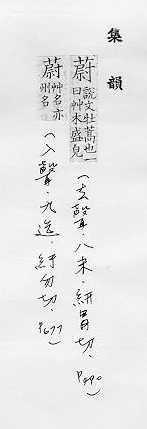 集韻
蔚 說文牡蒿也一曰艸木盛皃
(去聲·八未·紆胃切·P490)
蔚 艸名亦州名
(入聲·九迄·紆勿切·P677)